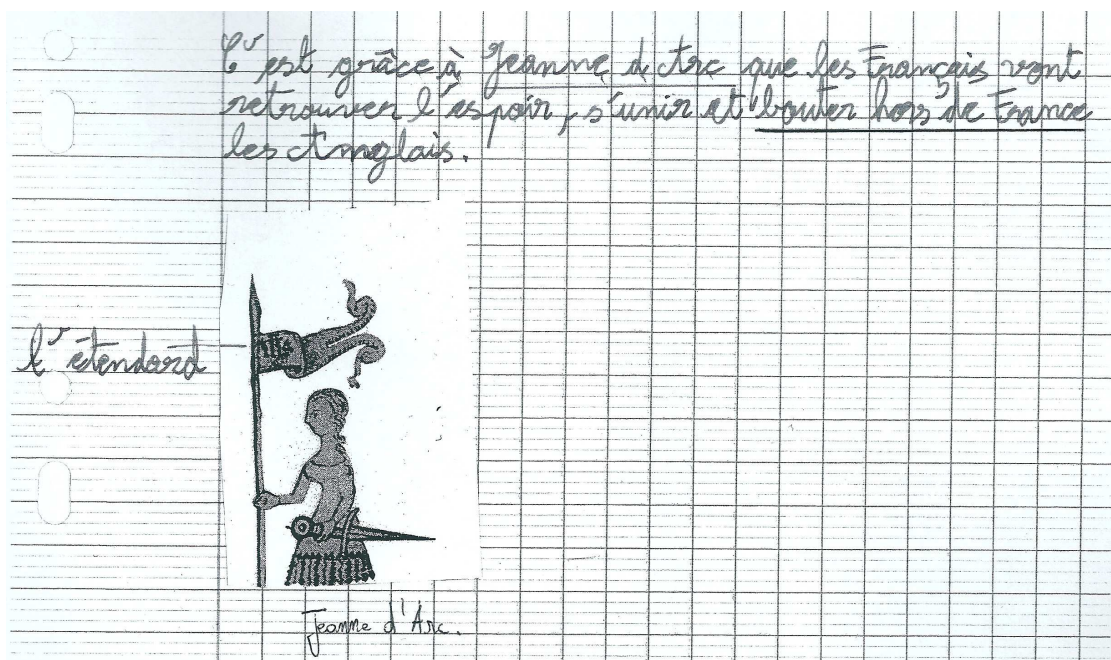 C'est grâce à Jeanne d'Arc que les Français vont
retrouver l'espoir, s'unir et "bouter hors" de France
les Anglais.
l'étendard
Jeanne d'Arc.